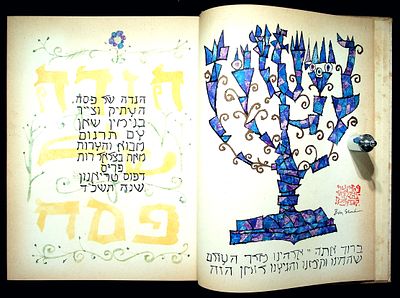 הגדה
של
פסח
הגדה של פסח
העתיק וצייר
בנימין שאן
עם תרגום
מבוא והערות
מאת בצלאל רות
פריס
דפוס טריאנון
שנה
Ben Shahn
ברוך אתה יי אלהינו מלך העולם
שהחינו וקימנו והגיענו לזמן הזה